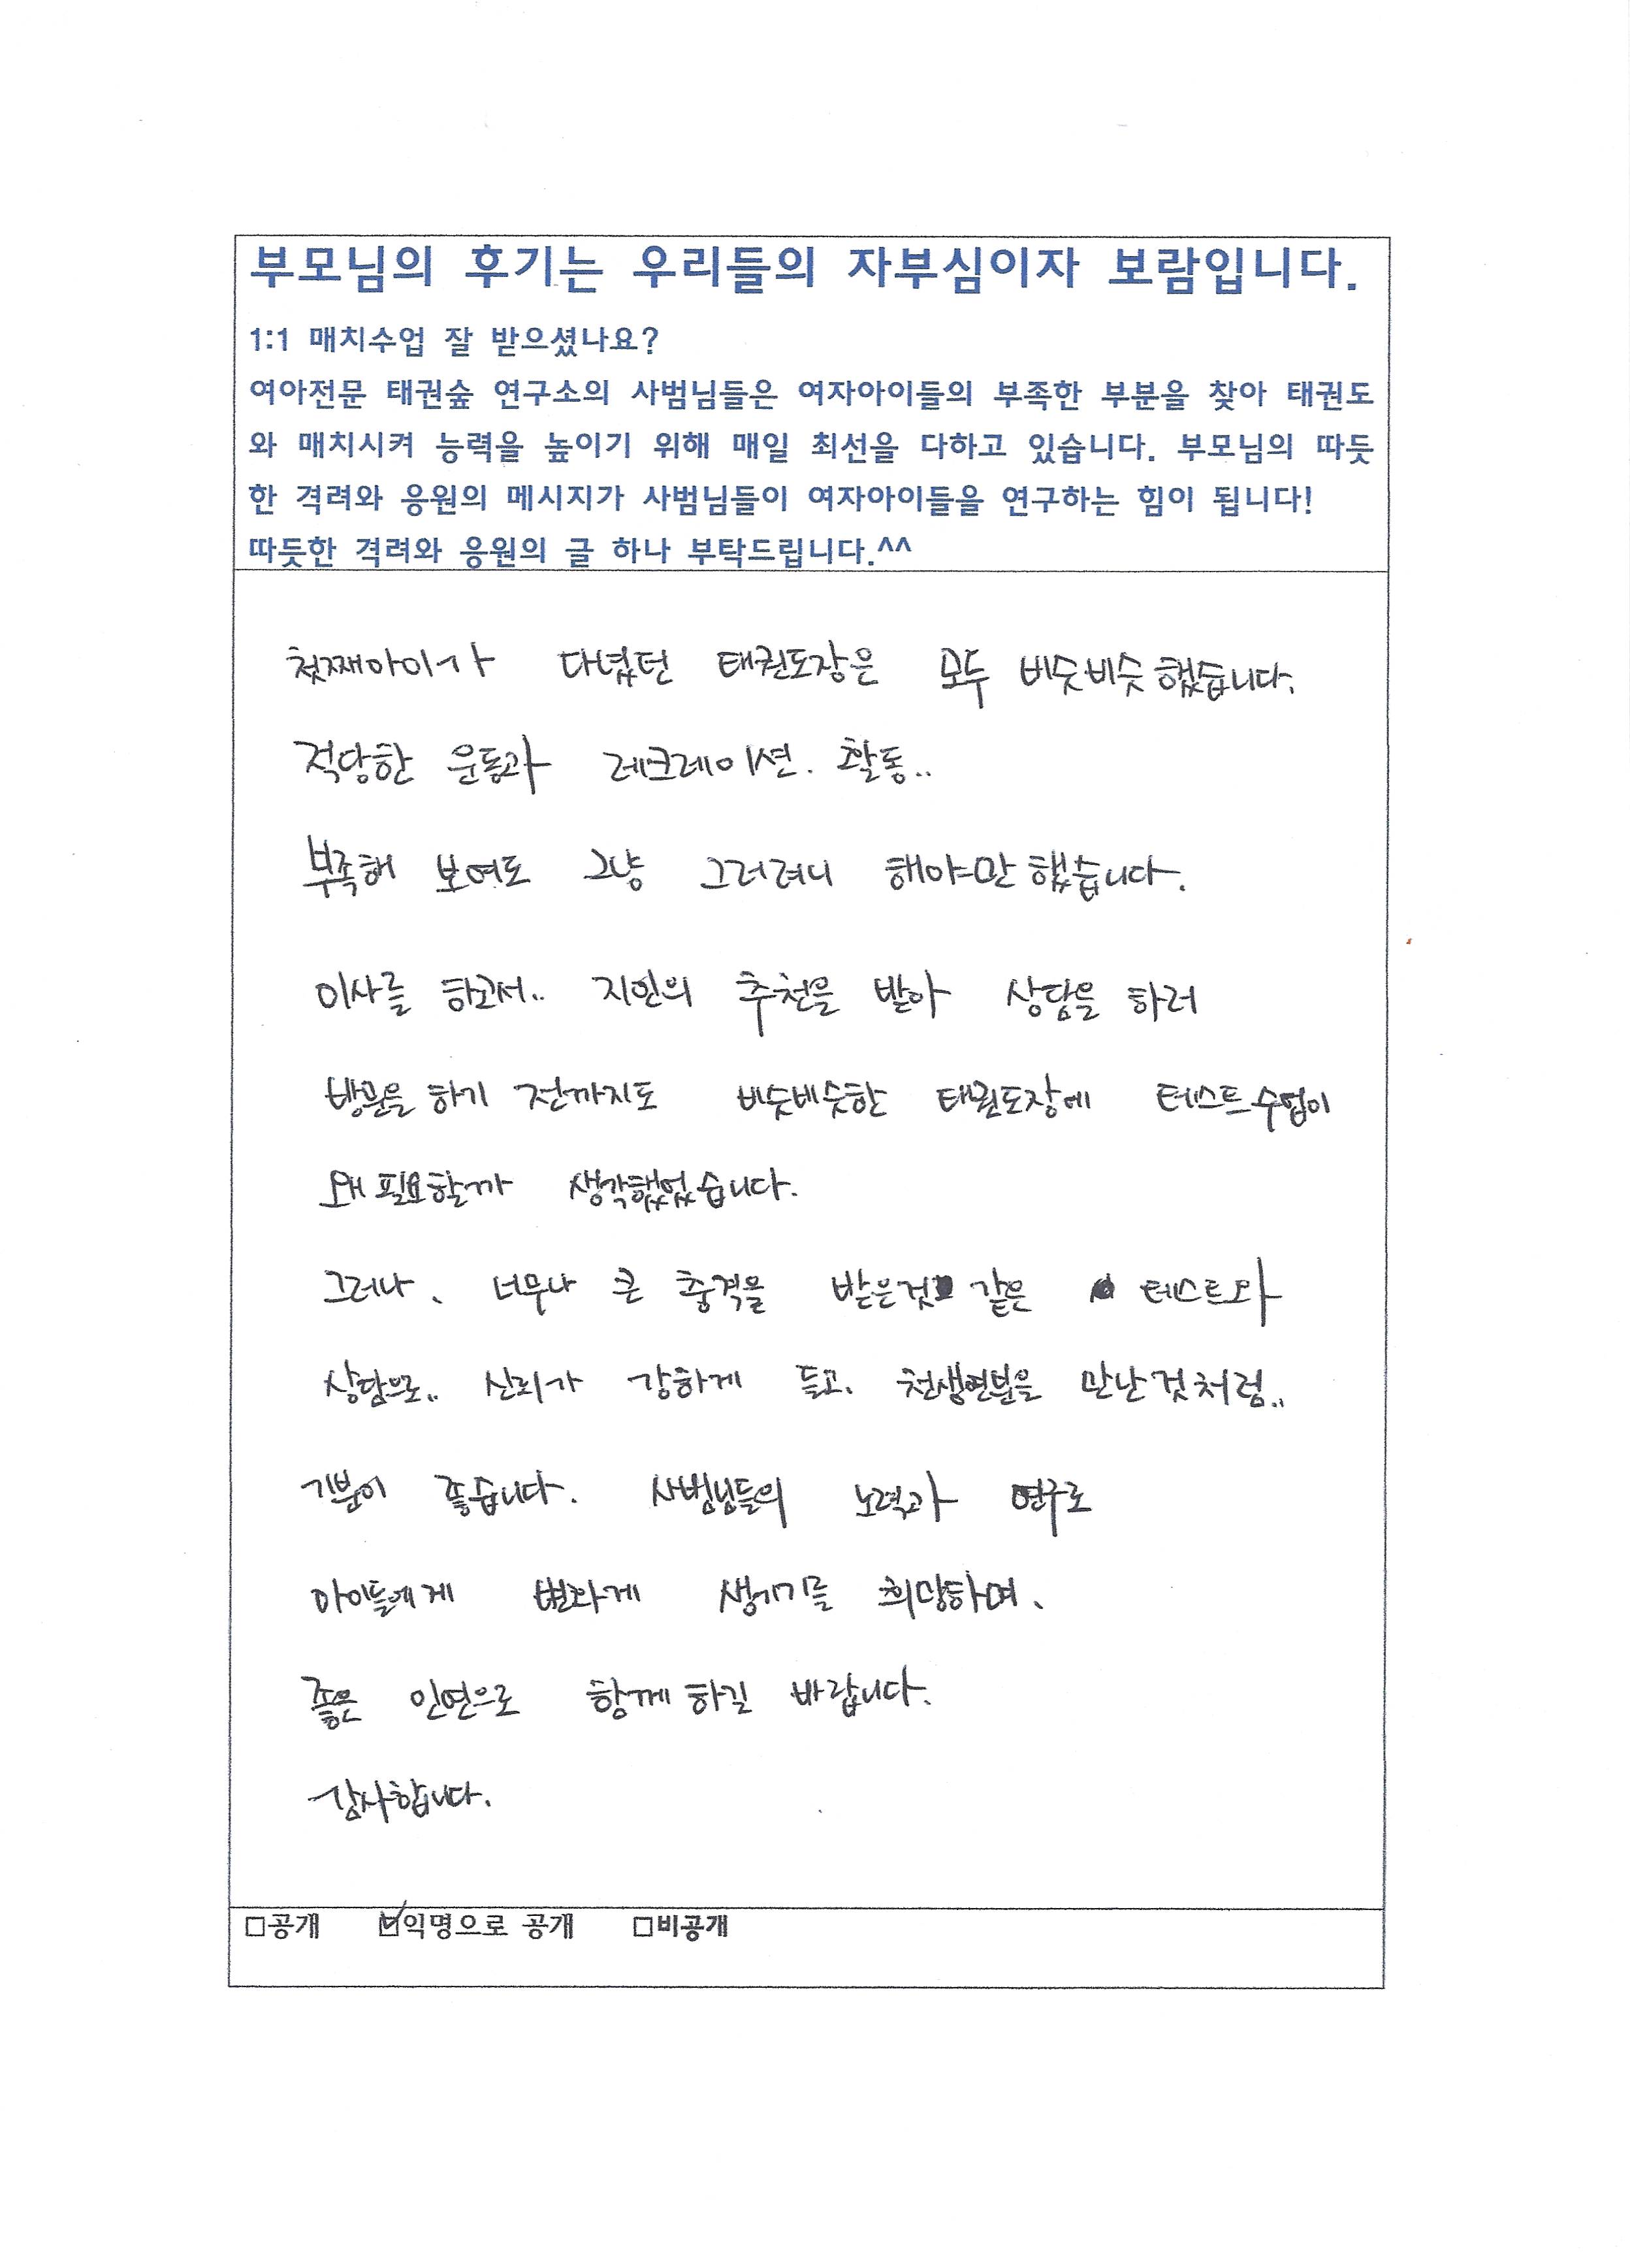 부모님의 후기는 우리들의 자부심이자 보람입니다.
1:1 매치수업 잘 받으셨나요?
여아전문 태권숲 연구소의 사범님들은 여자아이들의 부족한 부분을 찾아 태권도
와 매치시켜 능력을 높이기 위해 매일 최선을 다하고 있습니다. 부모님의 따듯
한 격려와 응원의 메시지가 사범님들이 여자아이들을 연구하는 힘이 됩니다!
따듯한 격려와 응원의 글 하나 부탁드립니다.^^
첫째아이가 다녔던 태권도장은 모두 비슷비슷했습니다.
적당한 운동과 레크레이션. 활동..
부족해 보여도 그냥 그러려니 해야만 했습니다.
이사를 하고서.. 지인의 추천을 받아 상담을 하러
방문을 하기 전까지도 비슷비슷한 태권도장에 테스트수업이
왜 필요할까 생각했었습니다.
그러나, 너무나 큰 충격을 받은것 같은 테스트와
상담으로.. 신뢰가 강하게 들고, 천생연분을 만난것처럼..
기분이 좋습니다. 사범님들의 노력과 연구로
아이들에게 생기기를 희망하며,
좋은 인연으로 함께하길 바랍니다.
감사합니다.
□공개 ☑익명으로 공개 □비공개